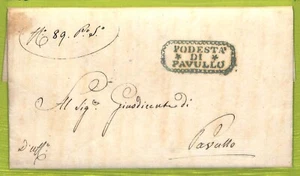 N° 89. P. S.
PODESTA'
DI
PAVULLO
Al Sig.r Giusdicente di
D'uff.o
Pavullo